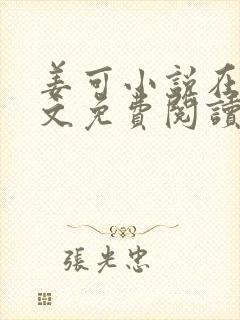 姜可小说在
文免費閱讀
張光忠